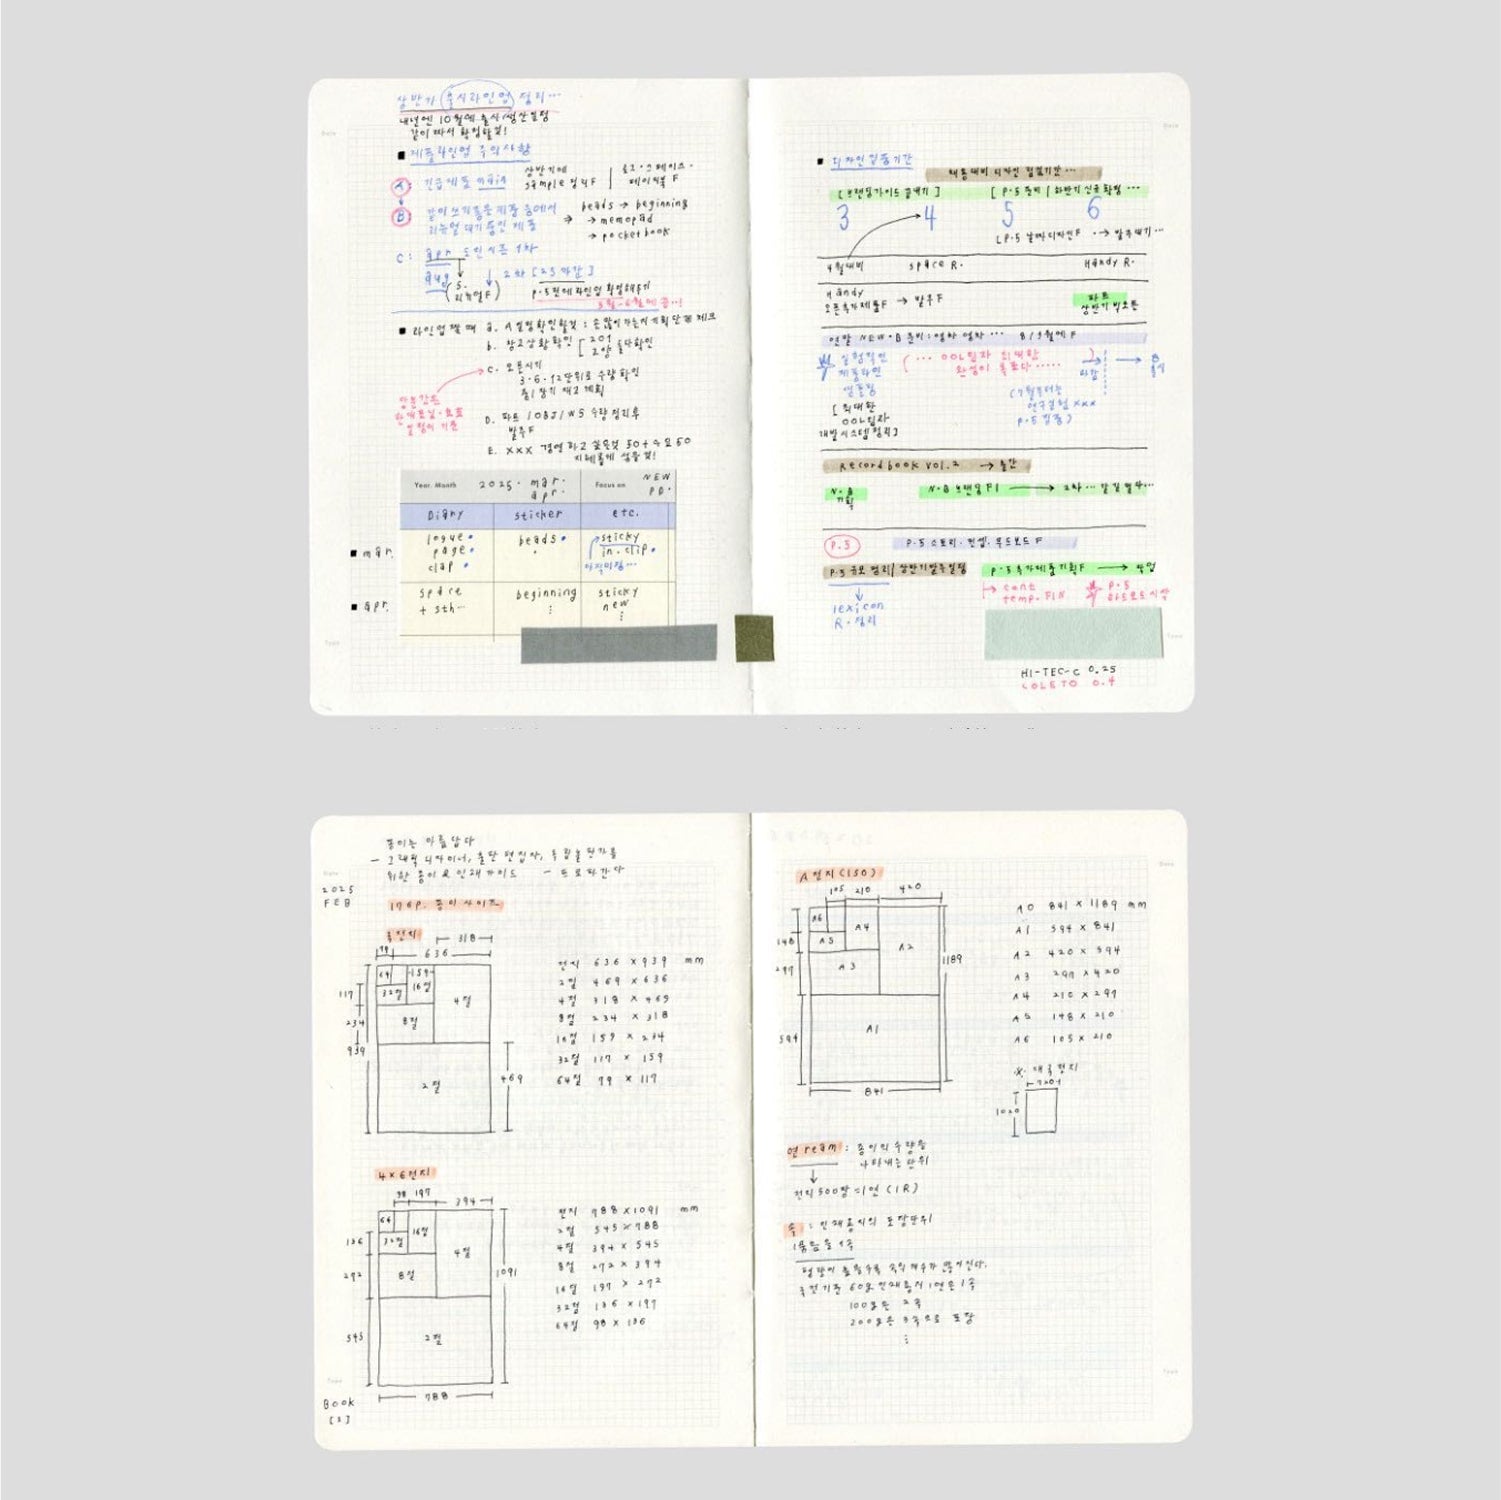 상반기 출시라인업 정리…
내년엔 10월에 출시/생산일정
같이 짜서 확정할것!
■ 제품라인업 주의사항
A: 긴급제품 main
상반기에
sample 정리F
로그·스페이스·
페이지북 F
B: 같이 쓰기 좋은 제품 중에서
리뉴얼 대기중인 제품
beads → beginning
→ memopad
→ pocketbook
C: apr 오픈시즌 1차
aug
2차 [25 마감]
S.
리뉴얼F
P.5전에 라인업 확정해두기
5월-6월에 꼭..!
■ 라인업 짤 때 a. A 일정확인할것:
b. 창고상황확인
c. 오픈시기
3·6·12단위로 수량확인
D. 파트 / OBJ / WS 수량정리후
발주F
E. xxx 경영 하고 싶은것 50 + 수요 50
Year. Month 2025. mar. apr.
Focus on NEW PD.
Diary sticker etc.
■ mar.
logue
page
clap
beads
sticky
in. clip
아직미정…
■ apr.
space
+ sth…
beginning
sticky
new
■ 디자인집중기간
[브랜딩가이드 끝내기] [P.5 준비 | 하반기 신규 확정 …
3 4 5 6
[P.5 날짜디자인F → 발주대기…
4월대비 space R. Handy R.
Handy
오픈추가제품F → 발주F
파트
상반기 빅오픈
연말 NEW·B 준비: 영차 영차 … 8/9월에 F
실험적인
제품라인
샘플링
(… OOL입자 최대한
완성이 목표다 …..)
마감
8
출시
[최대한
OOL입자
개발시스템 정리]
(7월부터는
연구실험 xxx
P.5 집중)
Recordbook vol.2 → 출간
N·B
기획
N·B 브랜딩 F1
P.5
P.5 스토리. 컨셉. 무드보드 F
P.5 규모 정리 | 상반기발주일정
P.5 추가제품기획F → 작업
lexicon
R. 정리
cont
temp. FIN
P.5
하드모드 시작
HI-TEC-C 0.25
COLETO 0.4
종이는 아름답다
- 그래픽 디자이너, 출판 편집자, 독립출판가를
위한 종이 & 인쇄 가이드 - 프로파간다
2025
FEB
176P. 종이 사이즈
국전지
318
79 636
64 159
32절 16절
4절
8절
2절
117
234
939
469
전지 636 × 939 mm
2절 469 × 636
4절 318 × 469
8절 234 × 318
16절 159 × 234
32절 117 × 159
64절 79 × 117
4×6전지
98 197 394
64
32절 16절
4절
8절
2절
136
272
545
1091
788
전지 788 × 1091 mm
2절 545 × 788
4절 394 × 545
8절 272 × 394
16절 197 × 272
32절 136 × 197
64절 98 × 136
Book
[1]
A전지 (ISO)
105 210 420
A6
A5 A4
A2
A3
A1
148
297
594
1189
841
A0 841 × 1189 mm
A1 594 × 841
A2 420 × 594
A3 297 × 420
A4 210 × 297
A5 148 × 210
A6 105 × 210
※. 대국전지
720
1020
연 ream : 종이의 수량을
나타내는 단위
전지 500장 = 1연 (1R)
속 : 인쇄용지의 포장단위
1묶음을 1속
국전기준 60g 인쇄용지 1연은 1속
100g은 2속
200g은 3속으로 포장